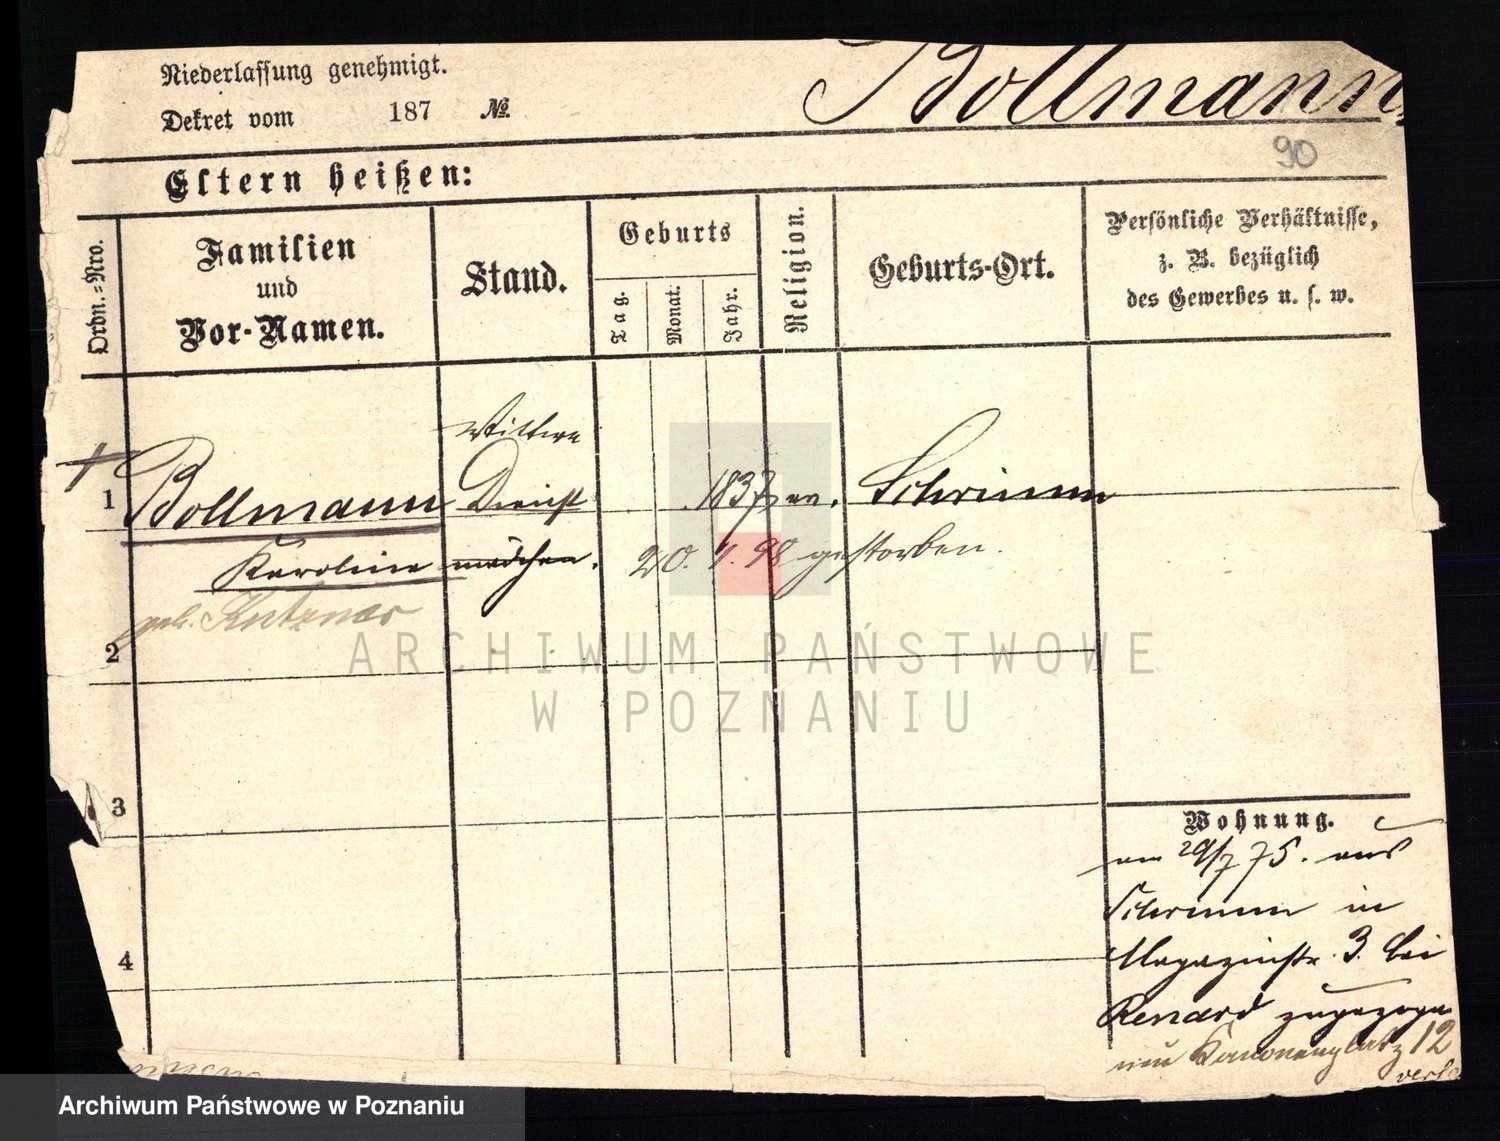 Niederlassung genehmigt.
Dekret vom 187 №
Bollmann
90
Eltern heißen:
Ordn.-Nro.
Familien
und
Vor-Namen.
Stand.
Geburts
Tag.
Monat.
Jahr.
Religion.
Geburts-Ort.
Persönliche Verhältnisse,
z. B. bezüglich
des Gewerbes u. s. w.
Wittwe
1 Bollmann Dienst 1837 ev. Schrimm
Karoline mädchen. 20. 4. 98 gestorben.
geb. Kutzner
2
3
4
Wohnung.
am 29/7 75. aus
Schrimm in
Magazinstr. 3. bei
Renard zugezogen
Kanonenplatz 12
ARCHIWUM PAŃSTWOWE
W POZNANIU
Archiwum Państwowe w Poznaniu